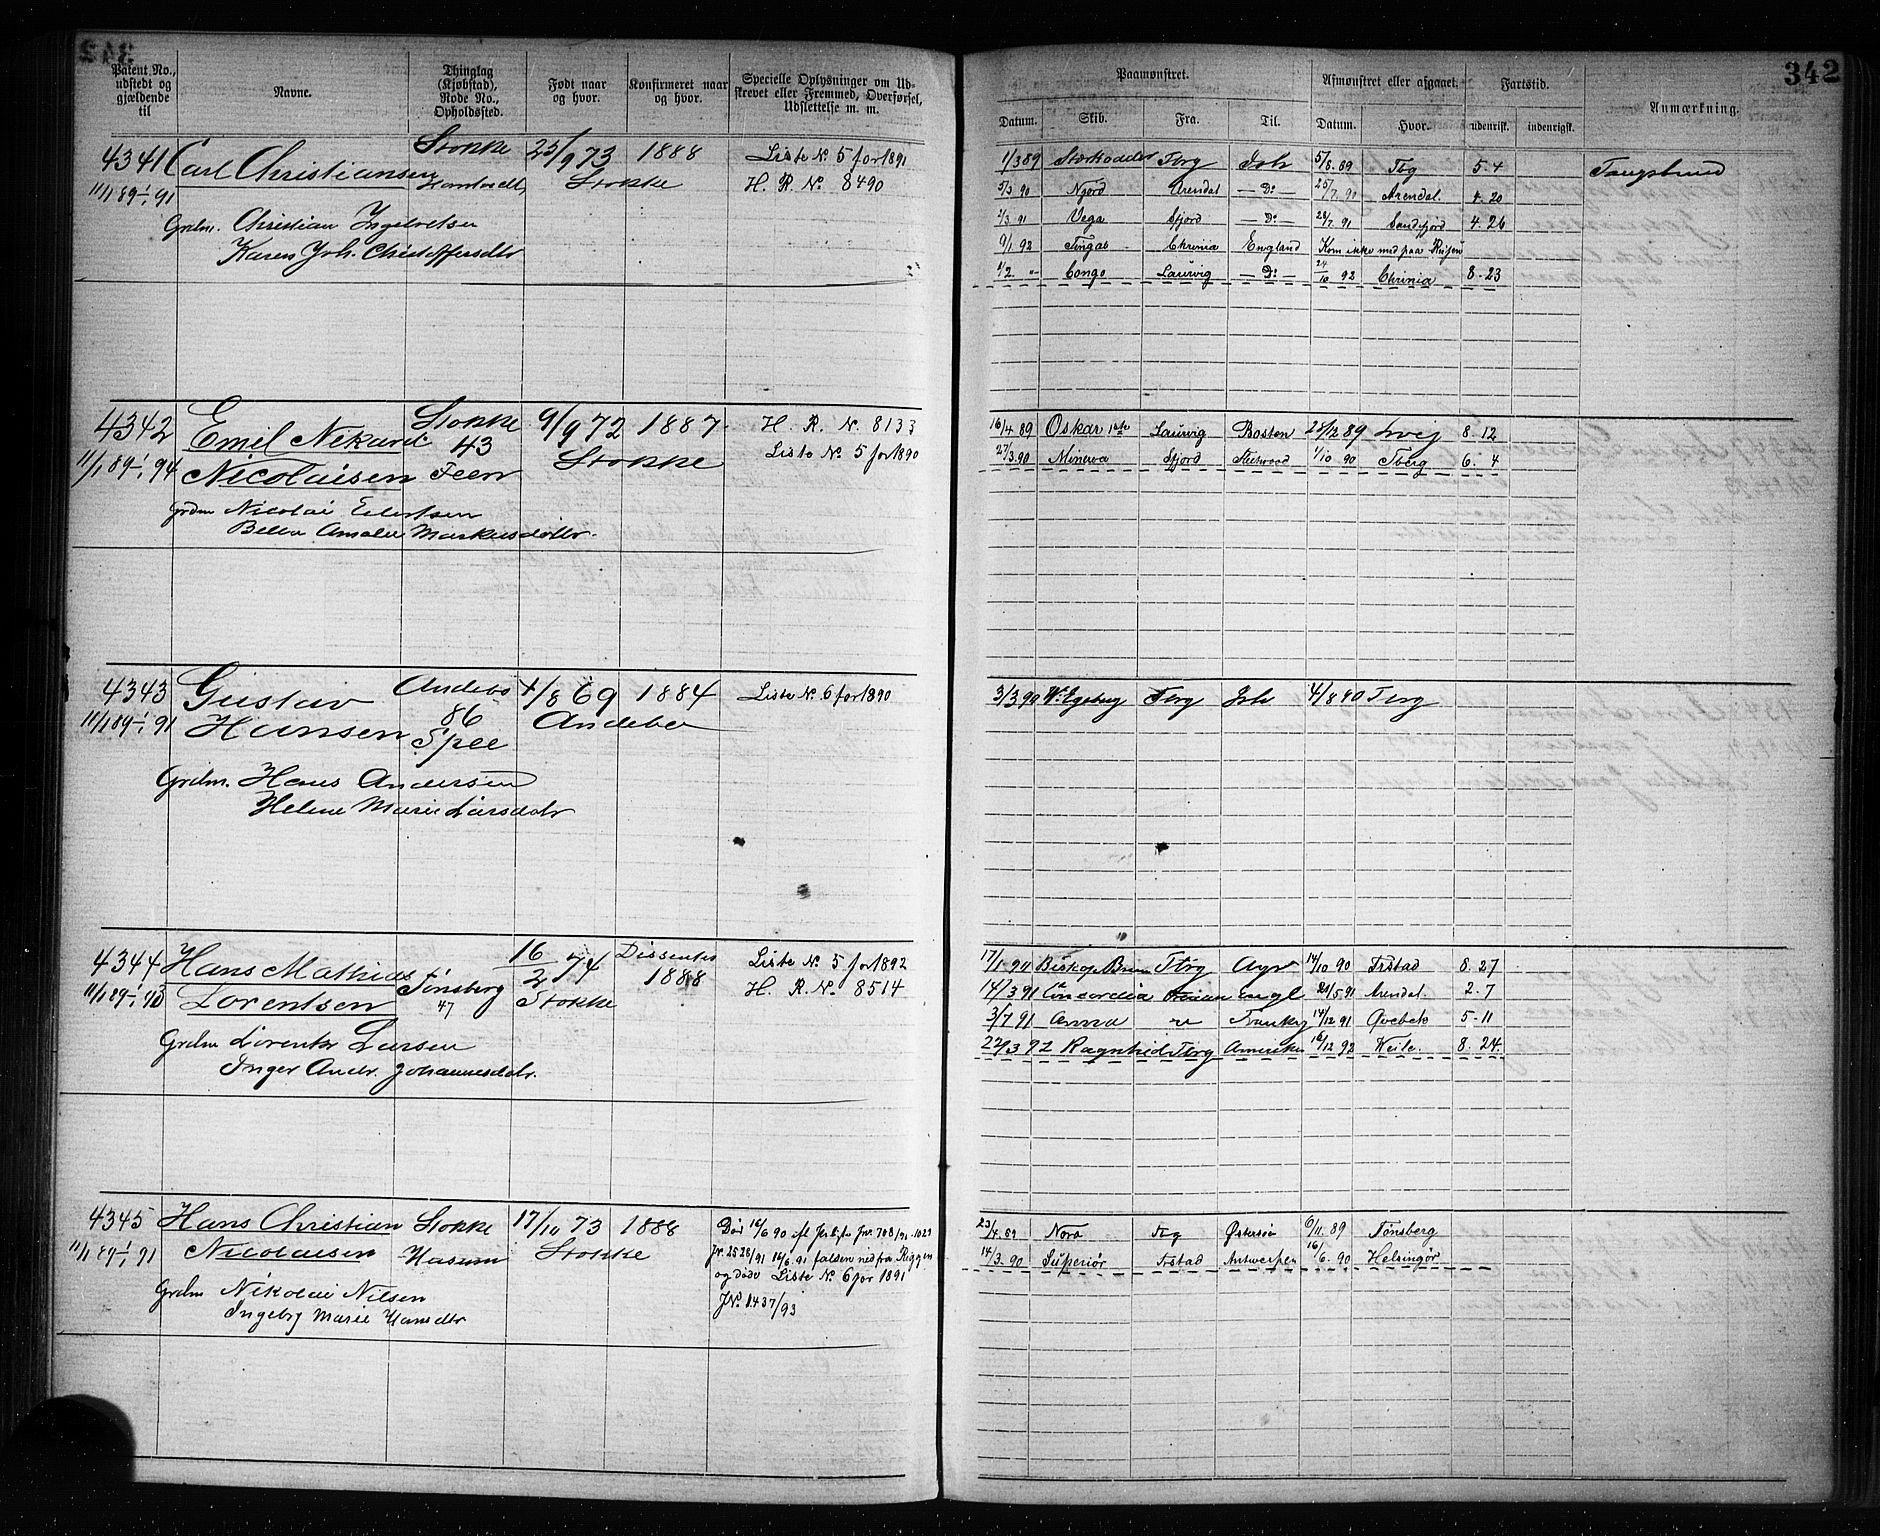 342
Patent No., udstedt og gjældende til
Navne.
Thinglag (Kjøbstad), Rode No., Opholdssted.
Født naar og hvor.
Konfirmeret naar og hvor.
Specielle Oplysninger om Udskrevet eller Fremmed, Overførsel, Udslettelse m. m.
Paamønstret.
Afmønstret eller afgaaet.
Fartstid.
Anmærkning.
Datum. Skib. Fra. Til. Datum. Hvor. udenrigsk. indenrigsk.
4341 Carl Christiansen Stokke 25/9 73 1888 Liste No. 5 for 1891
11/1 89-1/1 91 Stokke H. R. No. 8490
Grdm. Christian Ingelvetsen
Karen Joh. Christoffersdtr
1/3 89 Tbrg Ish 5/8 89 Tbg 5.4
5/3 90 Njord Arendal - Do - 25/7 90 Arendal. 4.20
2/3 91 Vega Sfjord - Do - 28/7 91 Sandefjord 4.26
9/1 92 Chrinia England Kom ikke med paa Reisen
1/2 " Congo Laurvig - Do - 24/10 92 Chrinia 8-23
4342 Emil Nekard Stokke 9/9 72 1887 H. R. No. 8133
11/1 89-1/1 94 Nicolaisen 43 Stokke Liste No. 5 for 1890
Grdm Nicolai Eilertsen
Amalie Markusdattr.
16/4 89 Oskar Laurvig Boston 21/12 89 Lvig 8.12
27/3 90 Minerva Sfjord Fleetwood 1/10 90 Tberg 6. 4
4343 Gustav Andebo 4/8 69 1884 Liste No. 6 for 1890
11/1 89-1/1 91 Hansen 86 Andebo
Spee
Grdm. Hans Andersen
Helene Marie Larsdatr
3/3 90 Egeberg Tbrg Ish 4/8 90 Tbrg
4344 Hans Mathias Tønsberg 16/2 74 Dissenter 1888 Liste No. 5 for 1892
11/1 89-1/1 90 Lorentsen 47 Stokke H. R. No. 8514
Grdm Lorents Larsen
Inger Andr. Johannesdatr.
17/1-90 Biskop Brun Tbrg Ayr 14/10 90 Frstad 8.27
14/3 91 Concordia Engl 21/5 91 Arendal. 2.7
3/7 91 Anna " Frankrg 14/12 91 Qvebek 5-11
22/3 92 Ragnhild Tbrg Amerika 16/12 92 Veile. 8.24
4345 Hans Christian Stokke 17/11 73 1888
11/1 89-1/1 91 Nicolaisen Hasum Stokke
Grdm Nikolai Nilsen
Ingeborg Marie Hansdtr
Død 16/6 90 Jnr. 708/91. 1023
Jr. 2528/91 16/6. 91 falden ned fra Riggen
og døde Liste No. 6 for 1891
JNo. 1437/93
23/4. 89 Nora Tbg Østersjø 6/11. 89 Tønsberg
14/3. 90 Superiør Frstad Antwerpen 16/6. 90 Helsingør